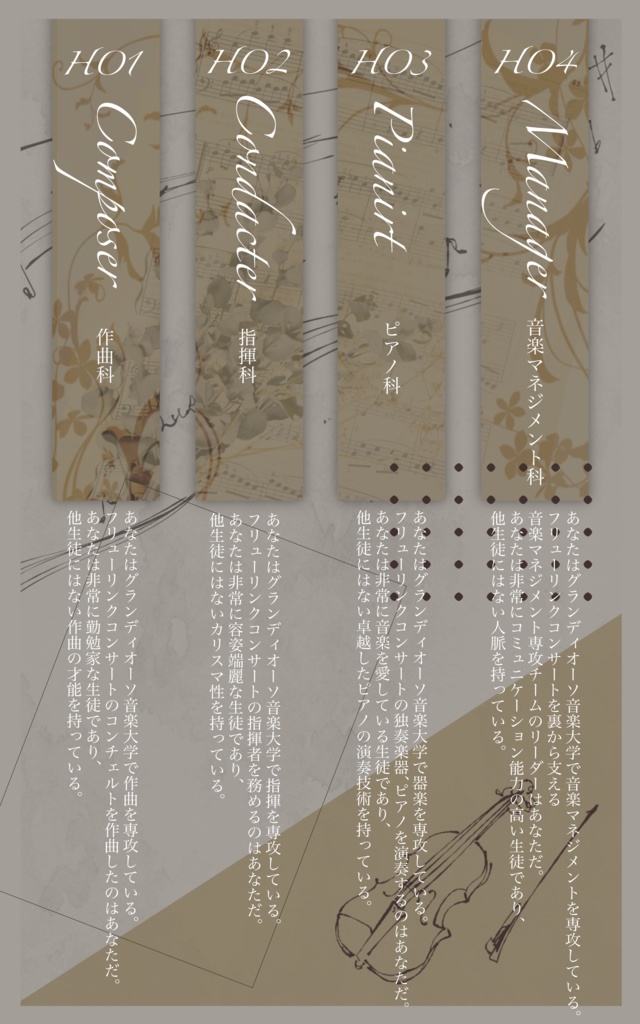 HO1
Composer
作曲科
あなたはグランディオーソ音楽大学で作曲を専攻している。
フリューリンクコンサートのコンチェルトを作曲したのはあなただ。
あなたは非常に勤勉家な生徒であり、
他生徒にはない作曲の才能を持っている。
HO2
Condacter
指揮科
あなたはグランディオーソ音楽大学で指揮を専攻している。
フリューリンクコンサートの指揮者を務めるのはあなただ。
あなたは非常に容姿端麗な生徒であり、
他生徒にはないカリスマ性を持っている。
HO3
Pianirt
ピアノ科
あなたはグランディオーソ音楽大学で器楽を専攻している。
フリューリンクコンサートの独奏楽器、ピアノを演奏するのはあなただ。
あなたは非常に音楽を愛している生徒であり、
他生徒にはない卓越したピアノの演奏技術を持っている。
HO4
Manager
音楽マネジメント科
あなたはグランディオーソ音楽大学で音楽マネジメントを専攻している。
フリューリンクコンサートを裏から支える
音楽マネジメント専攻チームのリーダーはあなただ。
あなたは非常にコミュニケーション能力の高い生徒であり、
他生徒にはない人脈を持っている。